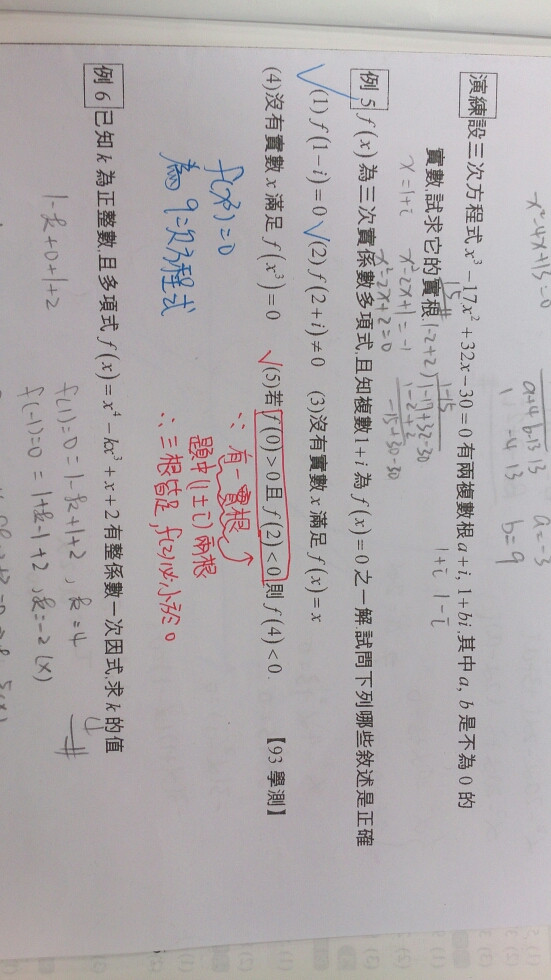 x²-4x+13=0
a+4 b-13 13
1 -4 13
a=-3
b=9
演練 設三次方程式 x³-17x²+32x-30=0 有兩複數根 a+i, 1+bi, 其中 a, b 是不為 0 的
實數,試求它的實根.
15
1+i 1-i
x=1+i
x²-2x+1=-1
x²-2x+2=0
1-15
1-2+2) 1-17+32-30
1-2+2
-15+30-30
例 5 f(x) 為三次實係數多項式,且知複數 1+i 為 f(x)=0 之一解.試問下列哪些敘述是正確
√(1) f(1-i)=0 √(2) f(2+i)≠0 (3)沒有實數 x 滿足 f(x)=x
(4)沒有實數 x 滿足 f(x³)=0 √(5)若 f(0)>0 且 f(2)<0,則 f(4)<0. 【93 學測】
f(x³)=0
為9次方程式
∵ 有一實根
題中(1±i)兩根
∴三根皆足, f(2)以小於0
例 6 已知 k 為正整數,且多項式 f(x)=x⁴-kx³+x+2 有整係數一次因式,求 k 的值
1-k+0+1+2
f(1)=0=1-k+1+2, k=4
f(-1)=0=1+k-1+2, k=-2(x)